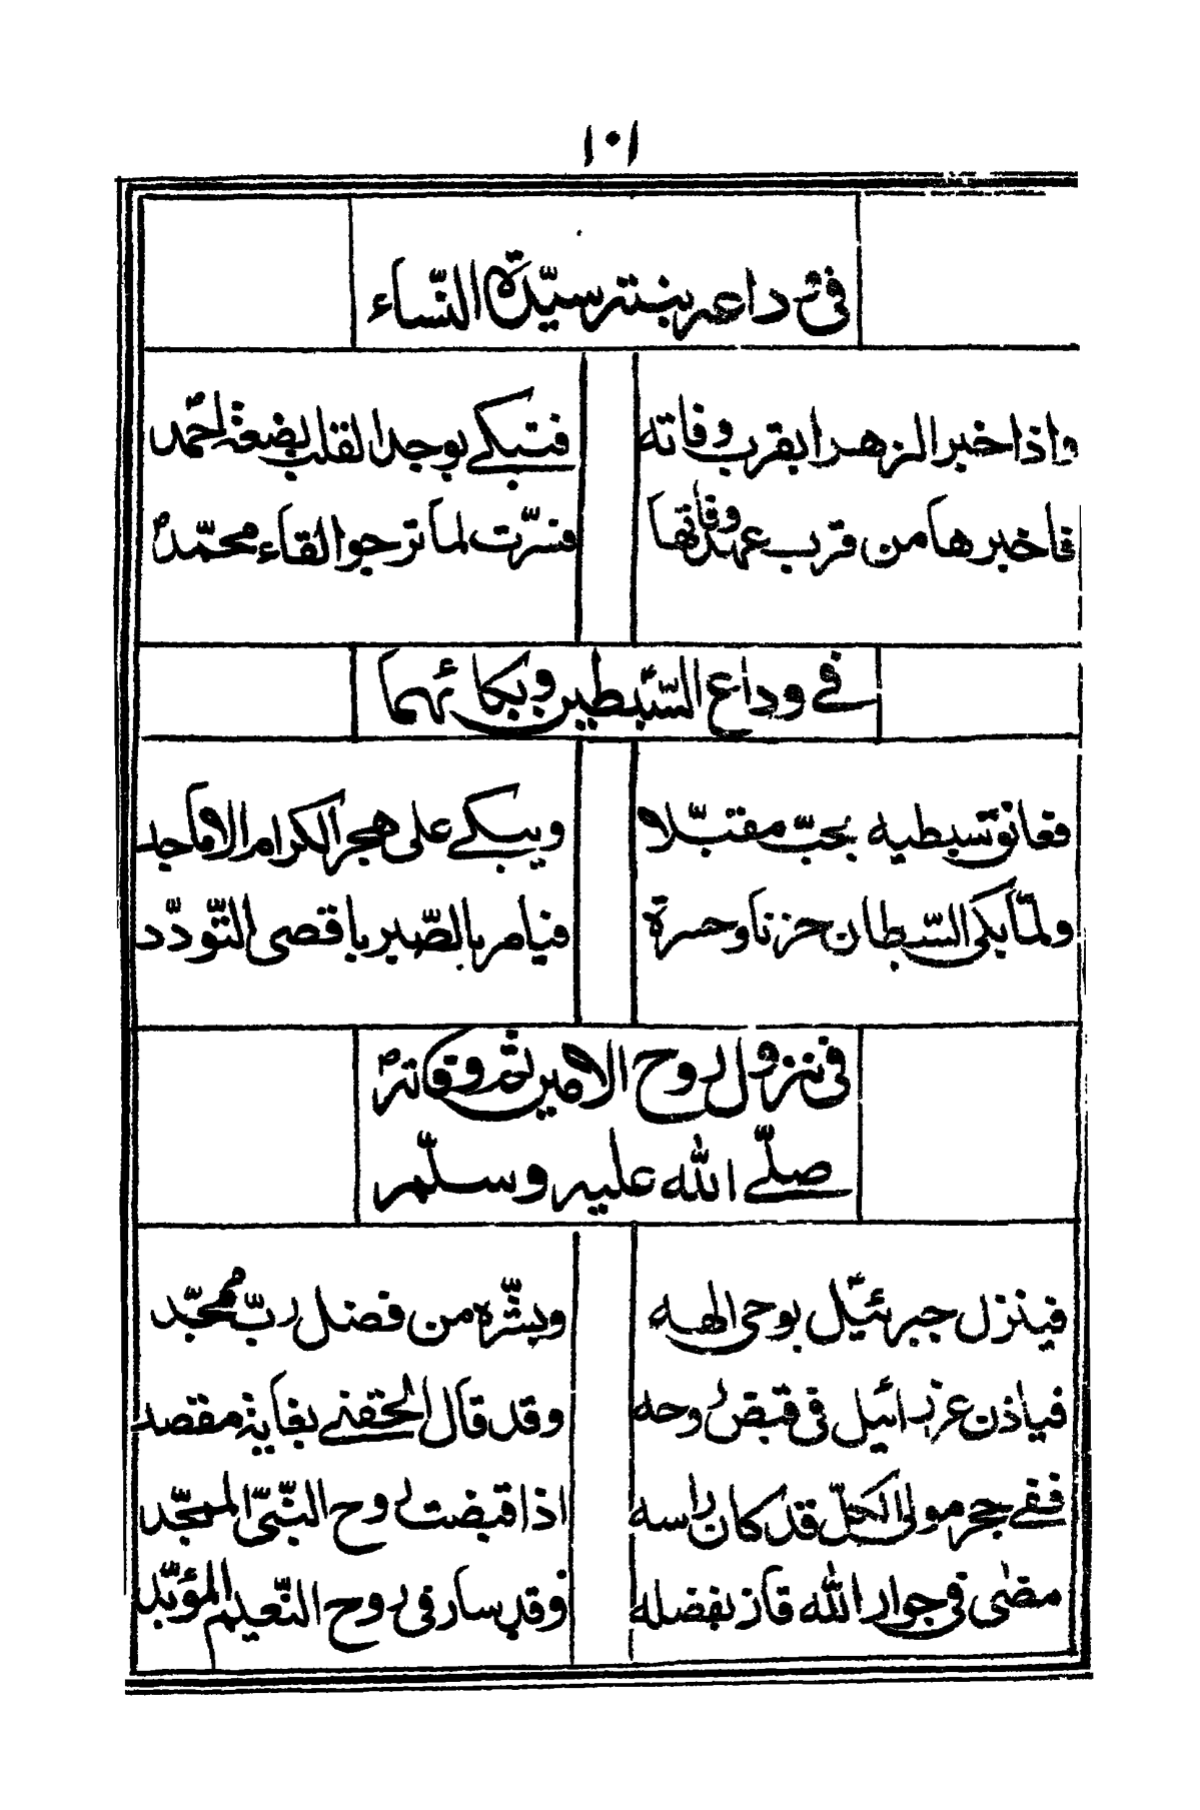 ١٠١
في وداعه بنته سيّدة النّساء
واذا خبر الزهرا بقرب وفاته فتبكے بوجد القلب بضعة احمد
فاخبرها من قرب عهد وفاتها فسرّت لما ترجوا لقاء محمّد
فے وداع السّبطين وبكائهما
فعانق سبطيه بحبّ مقبّلا ويبكے على هجر الكرام الاماجد
ولمّا بكى السّبطان حزنا وحسرة فيامر بالصّبر باقصى التّودّد
في نزول روح الامين عند وفاته
صلّے الله عليه وسلّم
فينزل جبرئيل بوحى الهه وبشّره من فضل ربّ ممجّد
فياذن عزرائيل في قبض روحه وقد قال الحقنے بغاية مقصد
ففے حجر مولى الكلّ قد كان راسه اذا قبضت روح النّبىّ الممجّد
مضى في جوار الله فاز بفضله وقد سار في روح النّعيم المؤبّد